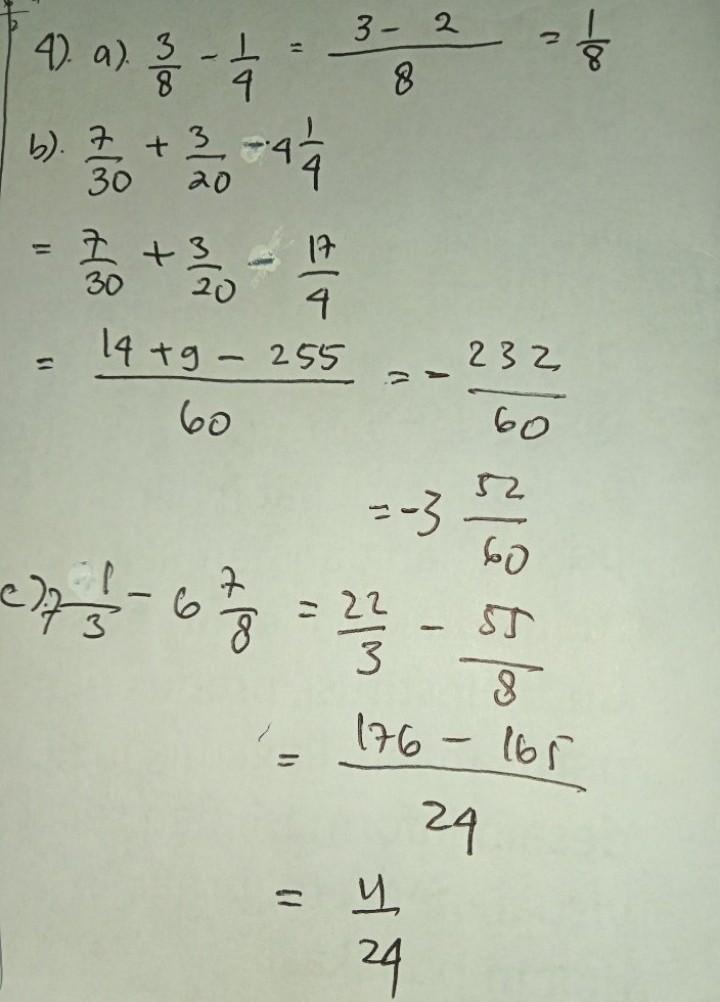 4). a). 3/8 - 1/4 = (3 - 2)/8 = 1/8
b). 7/30 + 3/20 - 4 1/4
= 7/30 + 3/20 - 17/4
= (14 + 9 - 255)/60 = - 232/60
= -3 52/60
c). 7 1/3 - 6 7/8 = 22/3 - 55/8
= (176 - 165)/24
= 11/24